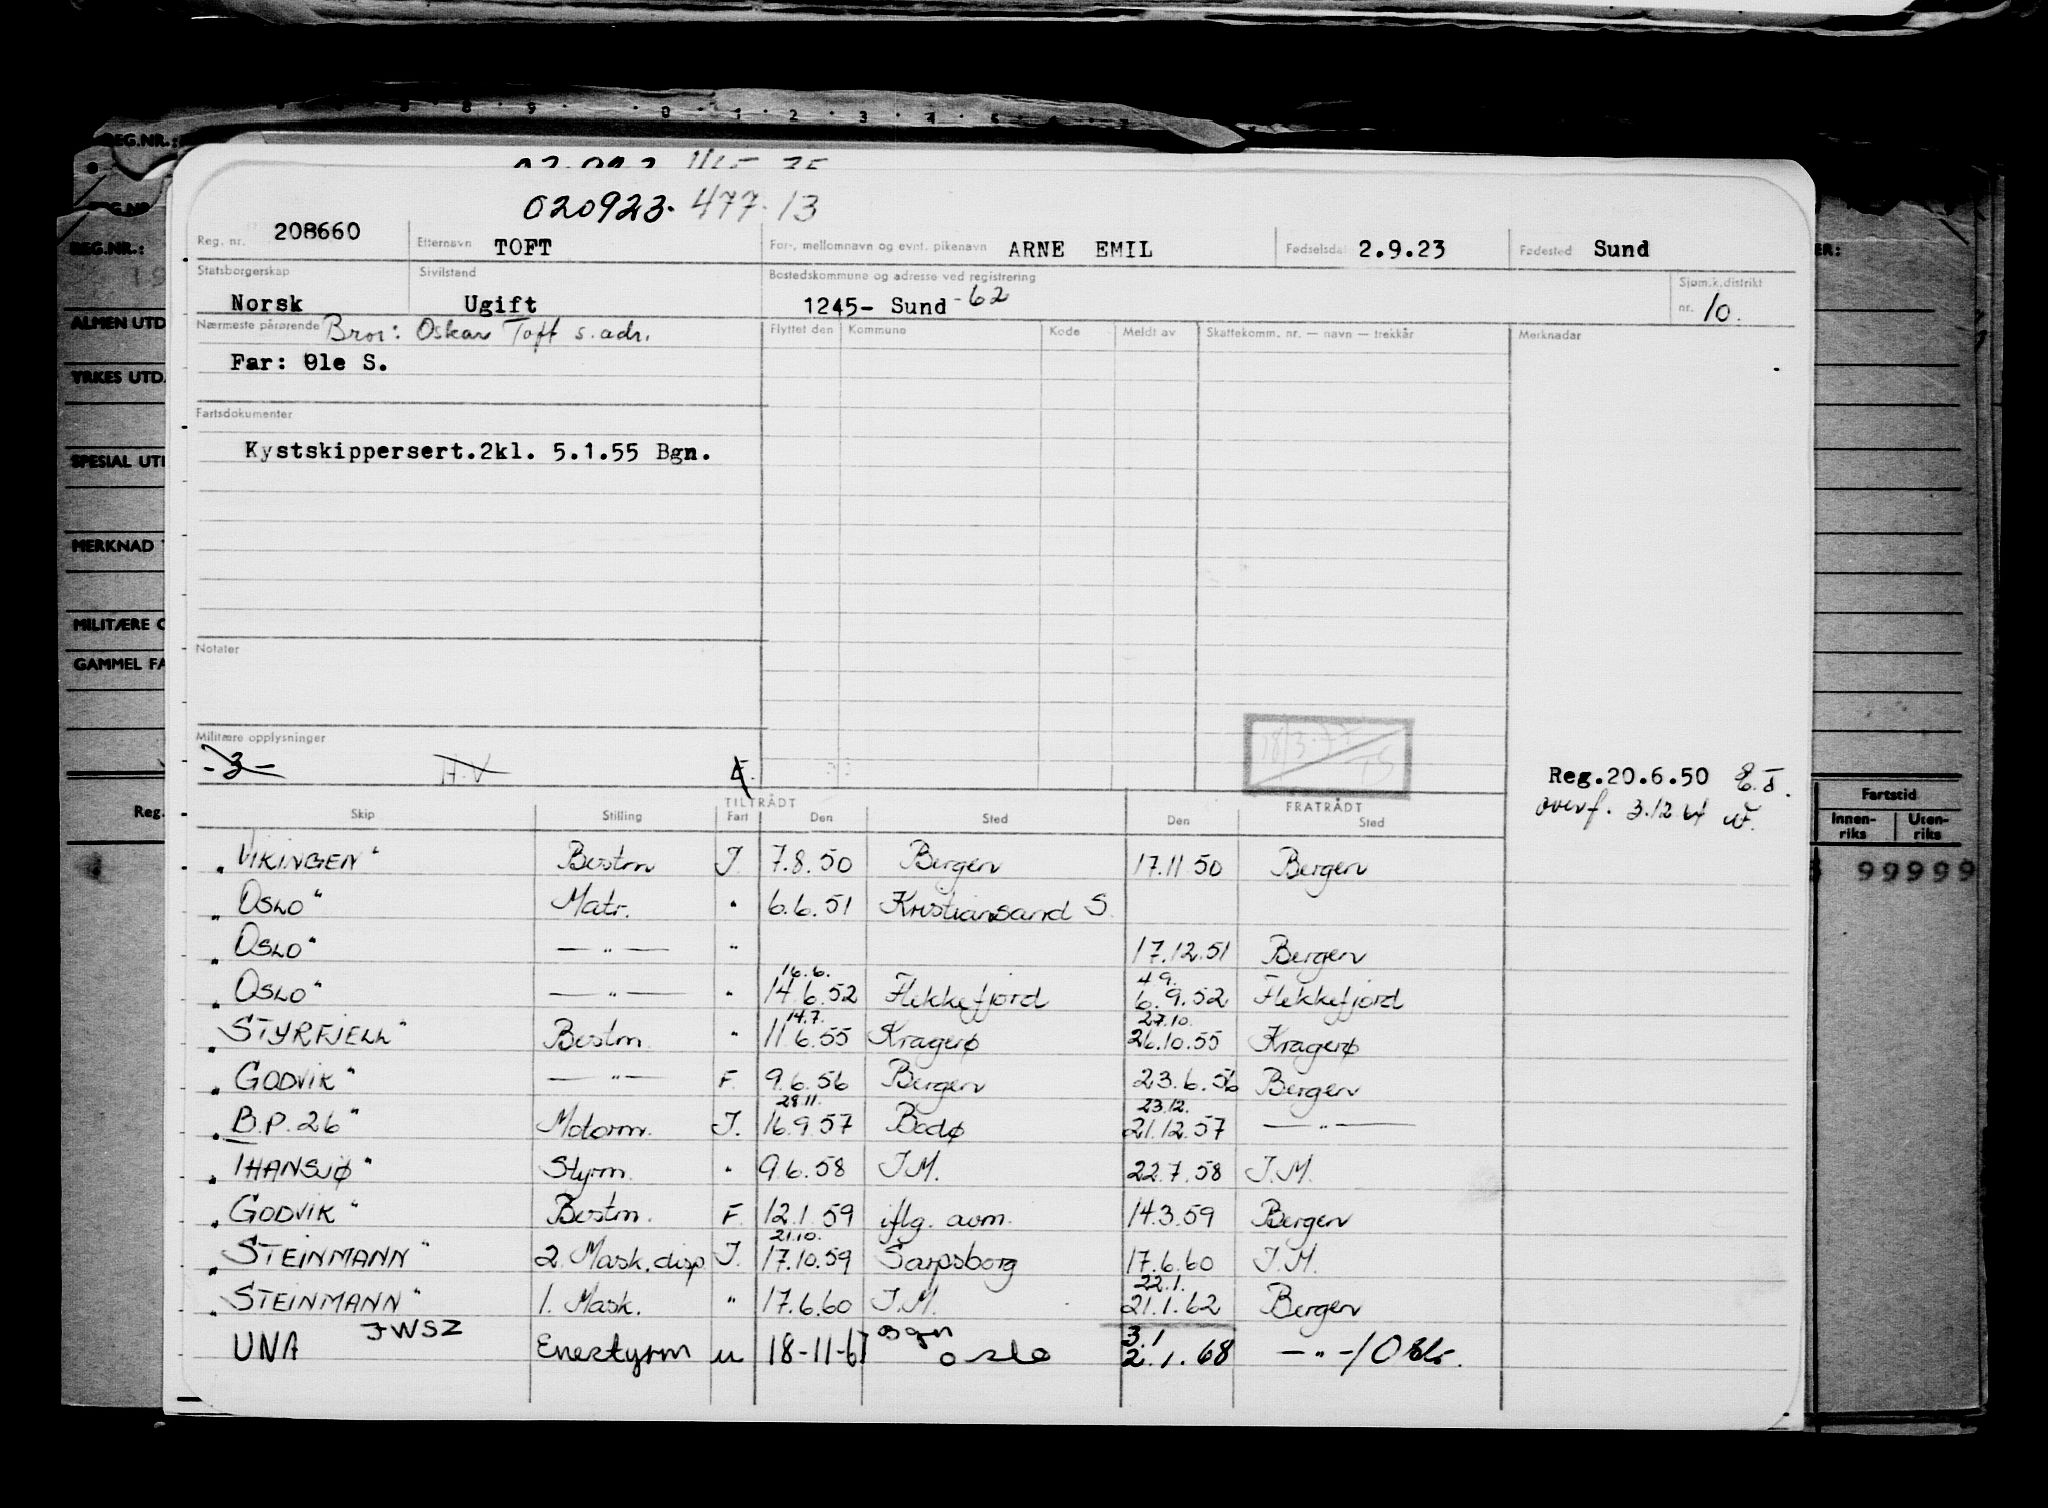 020923. 477.13
Reg. nr. 208660 Etternavn TOFT For-, mellomnavn og evnt. pikenavn ARNE EMIL Fødselsda 2.9.23 Fødested Sund
Statsborgerskap Norsk Sivilstand Ugift Bostedskommune og adresse ved registrering 1245- Sund -62 Sjøm.k.distrikt nr. 10.
Nærmeste pårørende Bror: Oskar Toft s. adr.
Far: Ole S.
Flyttet den Kommune Kode Meldt av Skattekomm. nr. — navn — trekkår Merknader
Fartsdokumenter
Kystskippersert.2kl. 5.1.55 Bgn.
Notater
Militære opplysninger
-3- H.V
Reg.20.6.50
overf. 3.12.64
TILTRÅDT FRATRÅDT
Skip Stilling Fart Den Sted Den Sted
"VIKINGEN" Bestm I. 7.8.50 Bergen 17.11 50 Bergen
"OSLO" Matr. " 6.6.51 Kristiansand S.
"OSLO" — " — " 17.12.51 Bergen
16.6. 4 9.
"OSLO" — " — " 14.6.52 Flekkefjord 6.9.52 Flekkefjord
14.7. 27.10.
"STYRFJELL" Bestm. " 11 6.55 Kragerø 26.10.55 Kragerø
"GODVIK" — " — F. 9.6.56 Bergen 23.6.56 Bergen
28 11. 23.12.
"B.P. 26" Motorm. I. 16.9.57 Bodø 21.12.57 — " —
"THANSJØ" Styrm. " 9.6.58 I.M. 22.7.58 I.M.
"GODVIK" Bestm. F. 12.1.59 iflg. avm. 14.3.59 Bergen
21.10.
"STEINMANN" 2. Mask.disp I. 17.10.59 Sarpsborg 17.6.60 I.M.
22.1.
"STEINMANN" 1. Mask. " 17.6.60 I.M. 21.1.62 Bergen
JWSZ 3.1
UNA Enestyrm u 18-11-67 oslo 2.1.68 — " —
REG.NR.:
REG.NR.:
ALMEN UTD
YRKES UTD.
SPESIAL UTD
MERKNAD
MILITÆRE O
GAMMEL FA
Reg.
ER:
Fartstid
Innenriks Utenriks
99999